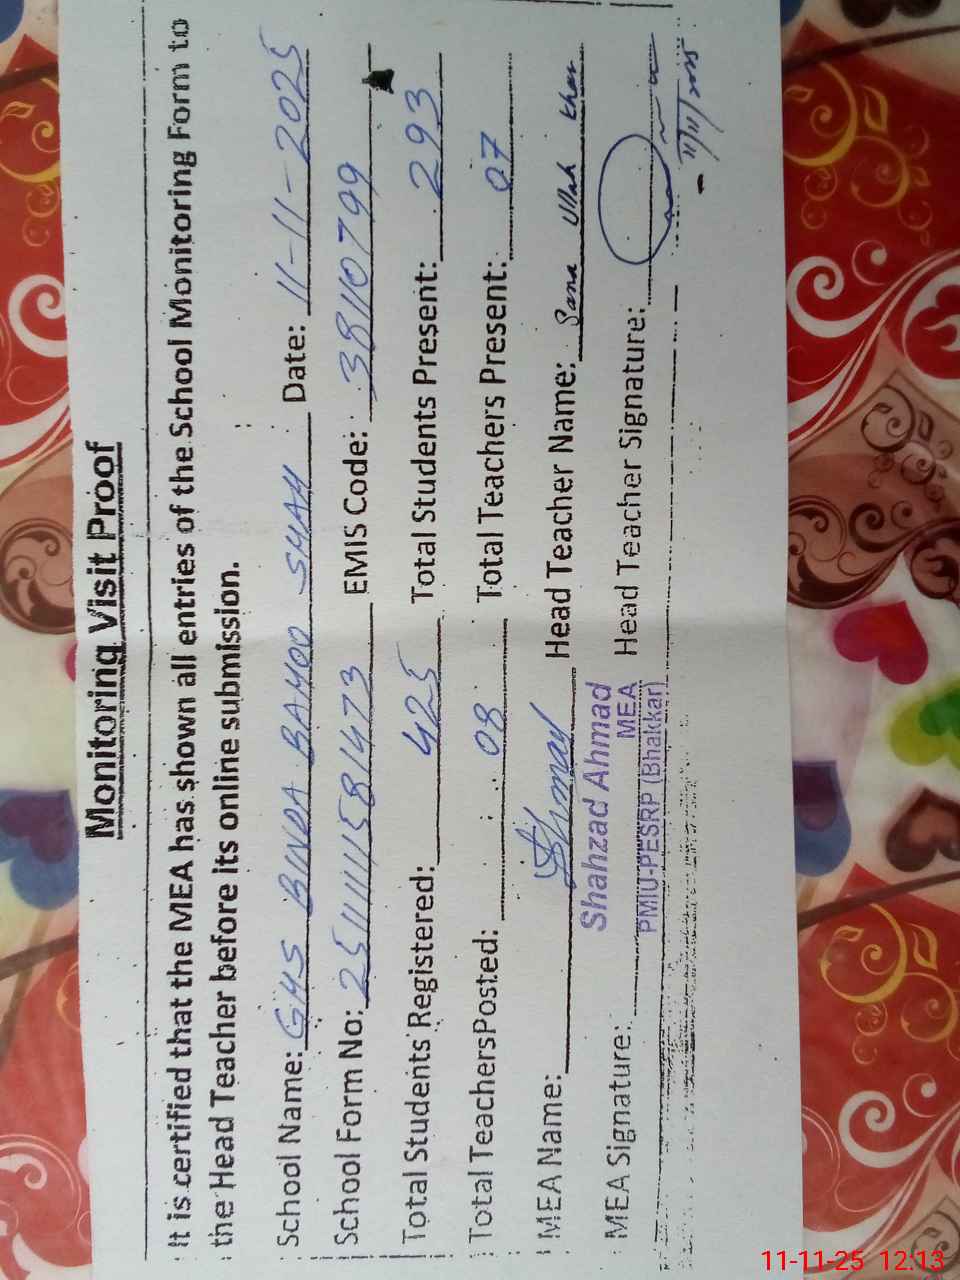 Monitoring Visit Proof
It is certified that the MEA has shown all entries of the School Monitoring Form to
the Head Teacher before its online submission.
School Name: GMS BINDA BAHOO SHAH Date: 11-11-2025
School Form No: 251111581473 EMIS Code: 38110799
Total Students Registered: 425 Total Students Present: 293
Total Teachers Posted: 08 Total Teachers Present: 07
MEA Name: Head Teacher Name: Sana Ullah Khan
Shahzad Ahmad
MEA
PMIU-PESRP (Bhakkar)
MEA Signature: Head Teacher Signature:
11/11/2025
11-11-25 12:13